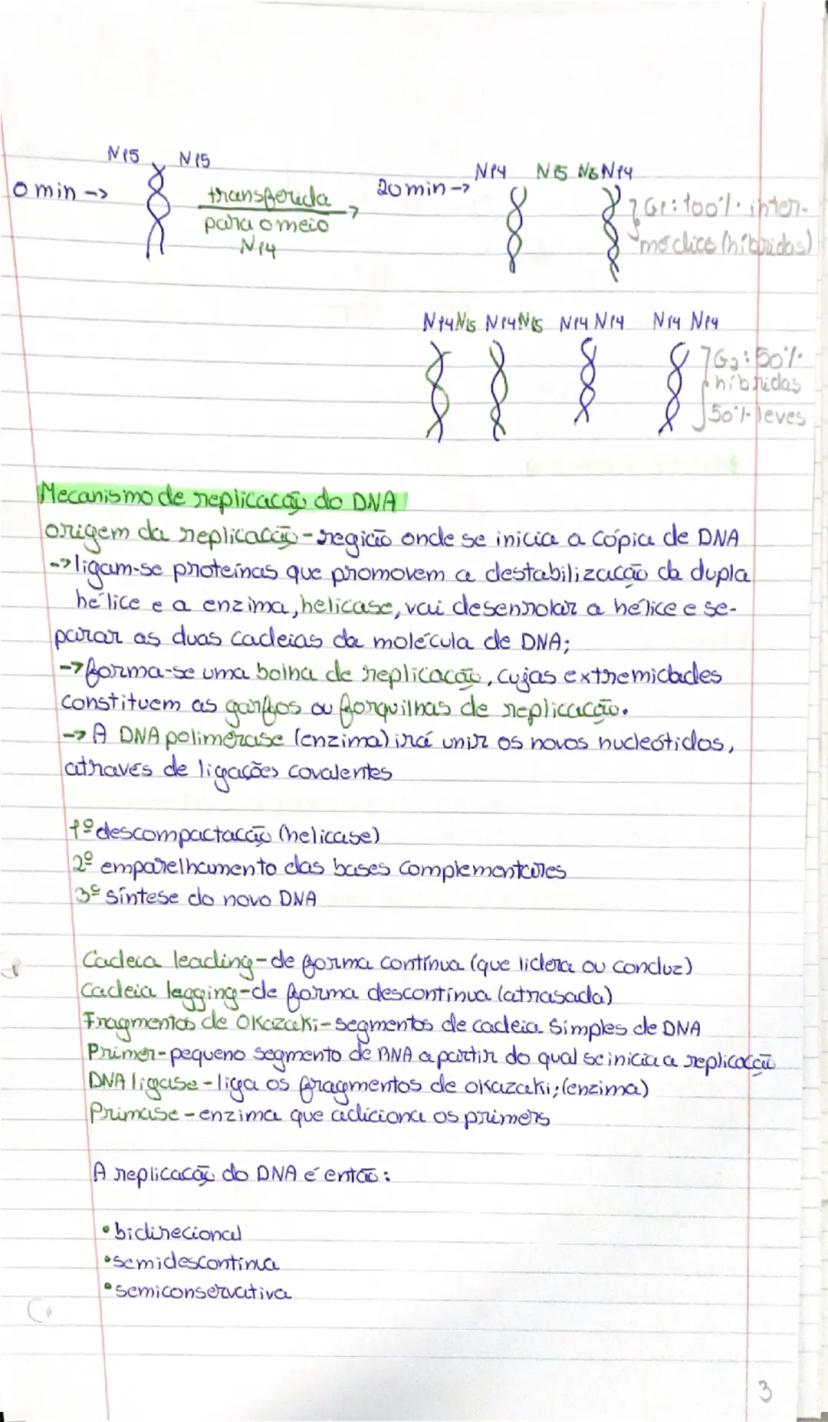 N15 N15
0 min -> transferida para o meio N14 -> 20 min -> N14 N15 N15 N14
G1: 100% inter-
médica (híbridas)
N14 N15 N14 N15 N14 N14 N14 N14
G2: 50%
híbridas
50% leves
Mecanismo de replicação do DNA
origem da replicação - região onde se inicia a cópia de DNA
-> ligam-se proteínas que promovem a destabilização da dupla
hélice e a enzima, helicase, vai desenrolar a hélice e se-
parar as duas cadeias da molécula de DNA;
-> forma-se uma bolha de replicação, cujas extremidades
constituem as garfos ou forquilhas de replicação.
-> A DNA polimerase (enzima) irá unir os novos nucleótidos,
através de ligações covalentes
1º descompactação (helicase)
2º emparelhamento das bases complementares
3º síntese do novo DNA
Cadeia leading - de forma contínua (que lidera ou conduz)
Cadeia legging - de forma descontínua (atrasada)
Fragmentos de Okazaki - segmentos de cadeia simples de DNA
Primer - pequeno segmento de RNA a partir do qual se inicia a replicação
DNA ligase - liga os fragmentos de okazaki; (enzima)
Primase - enzima que adiciona os primers
A replicação do DNA é então:
• bidirecional
• semidescontínua
• semiconservativa
3